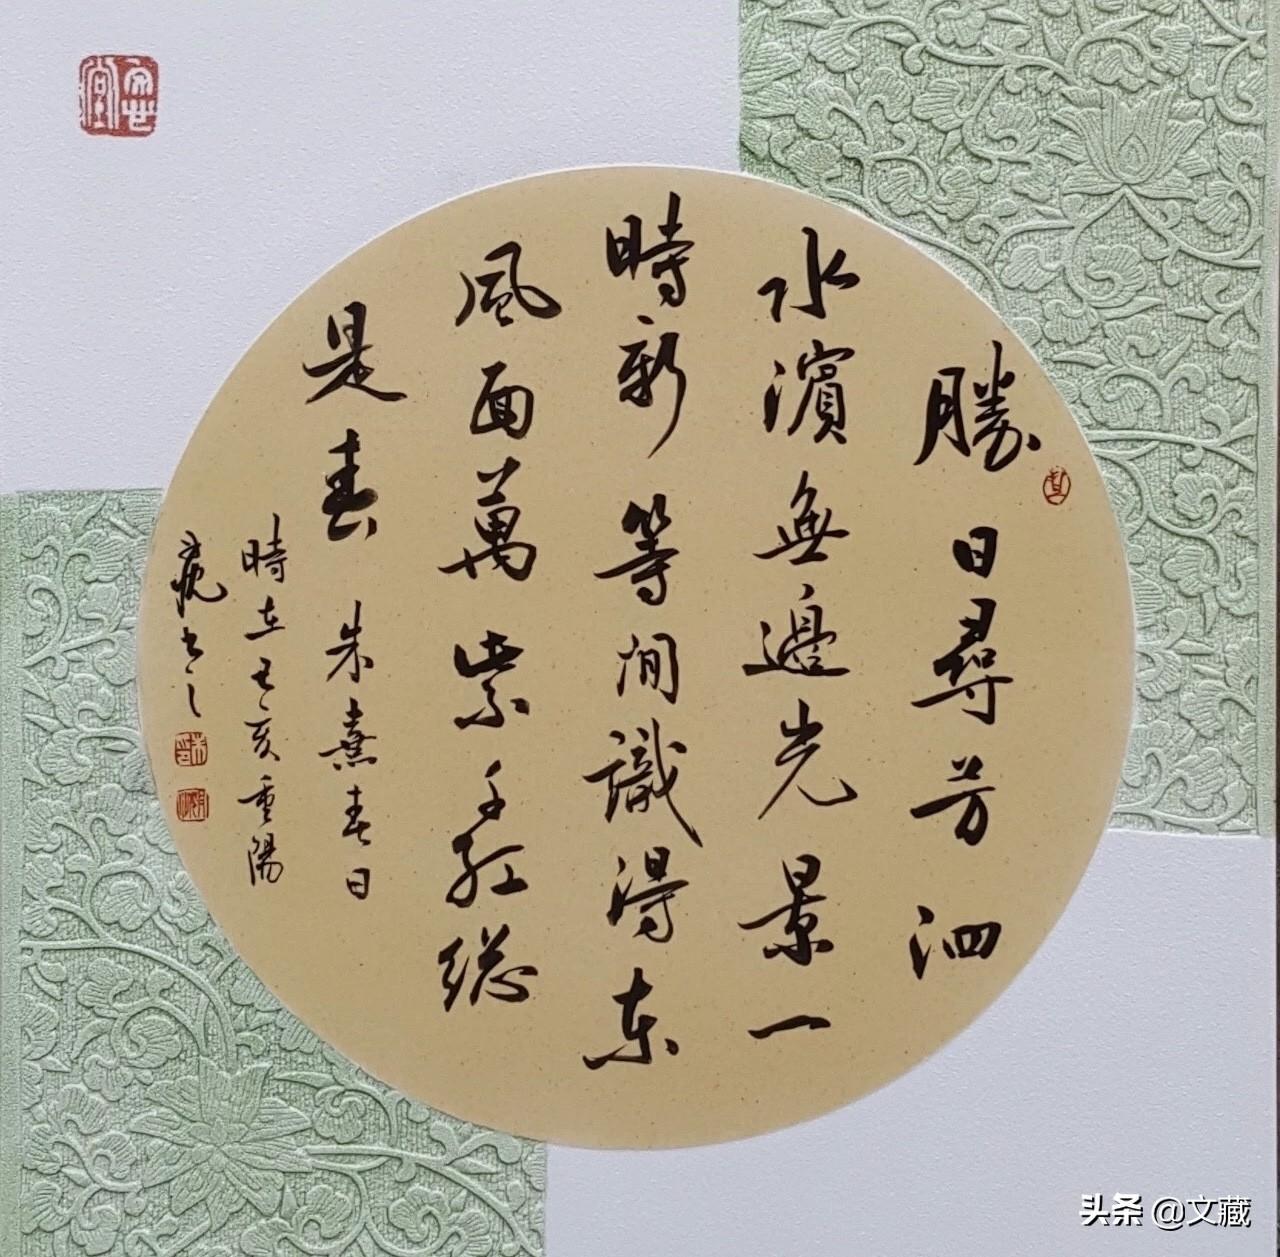 勝日尋芳泗
水濱無邊光景一
時新等閒識得東
風面萬紫千紅總
是春 朱熹春日
時在己亥重陽
書之
头条 @文藏